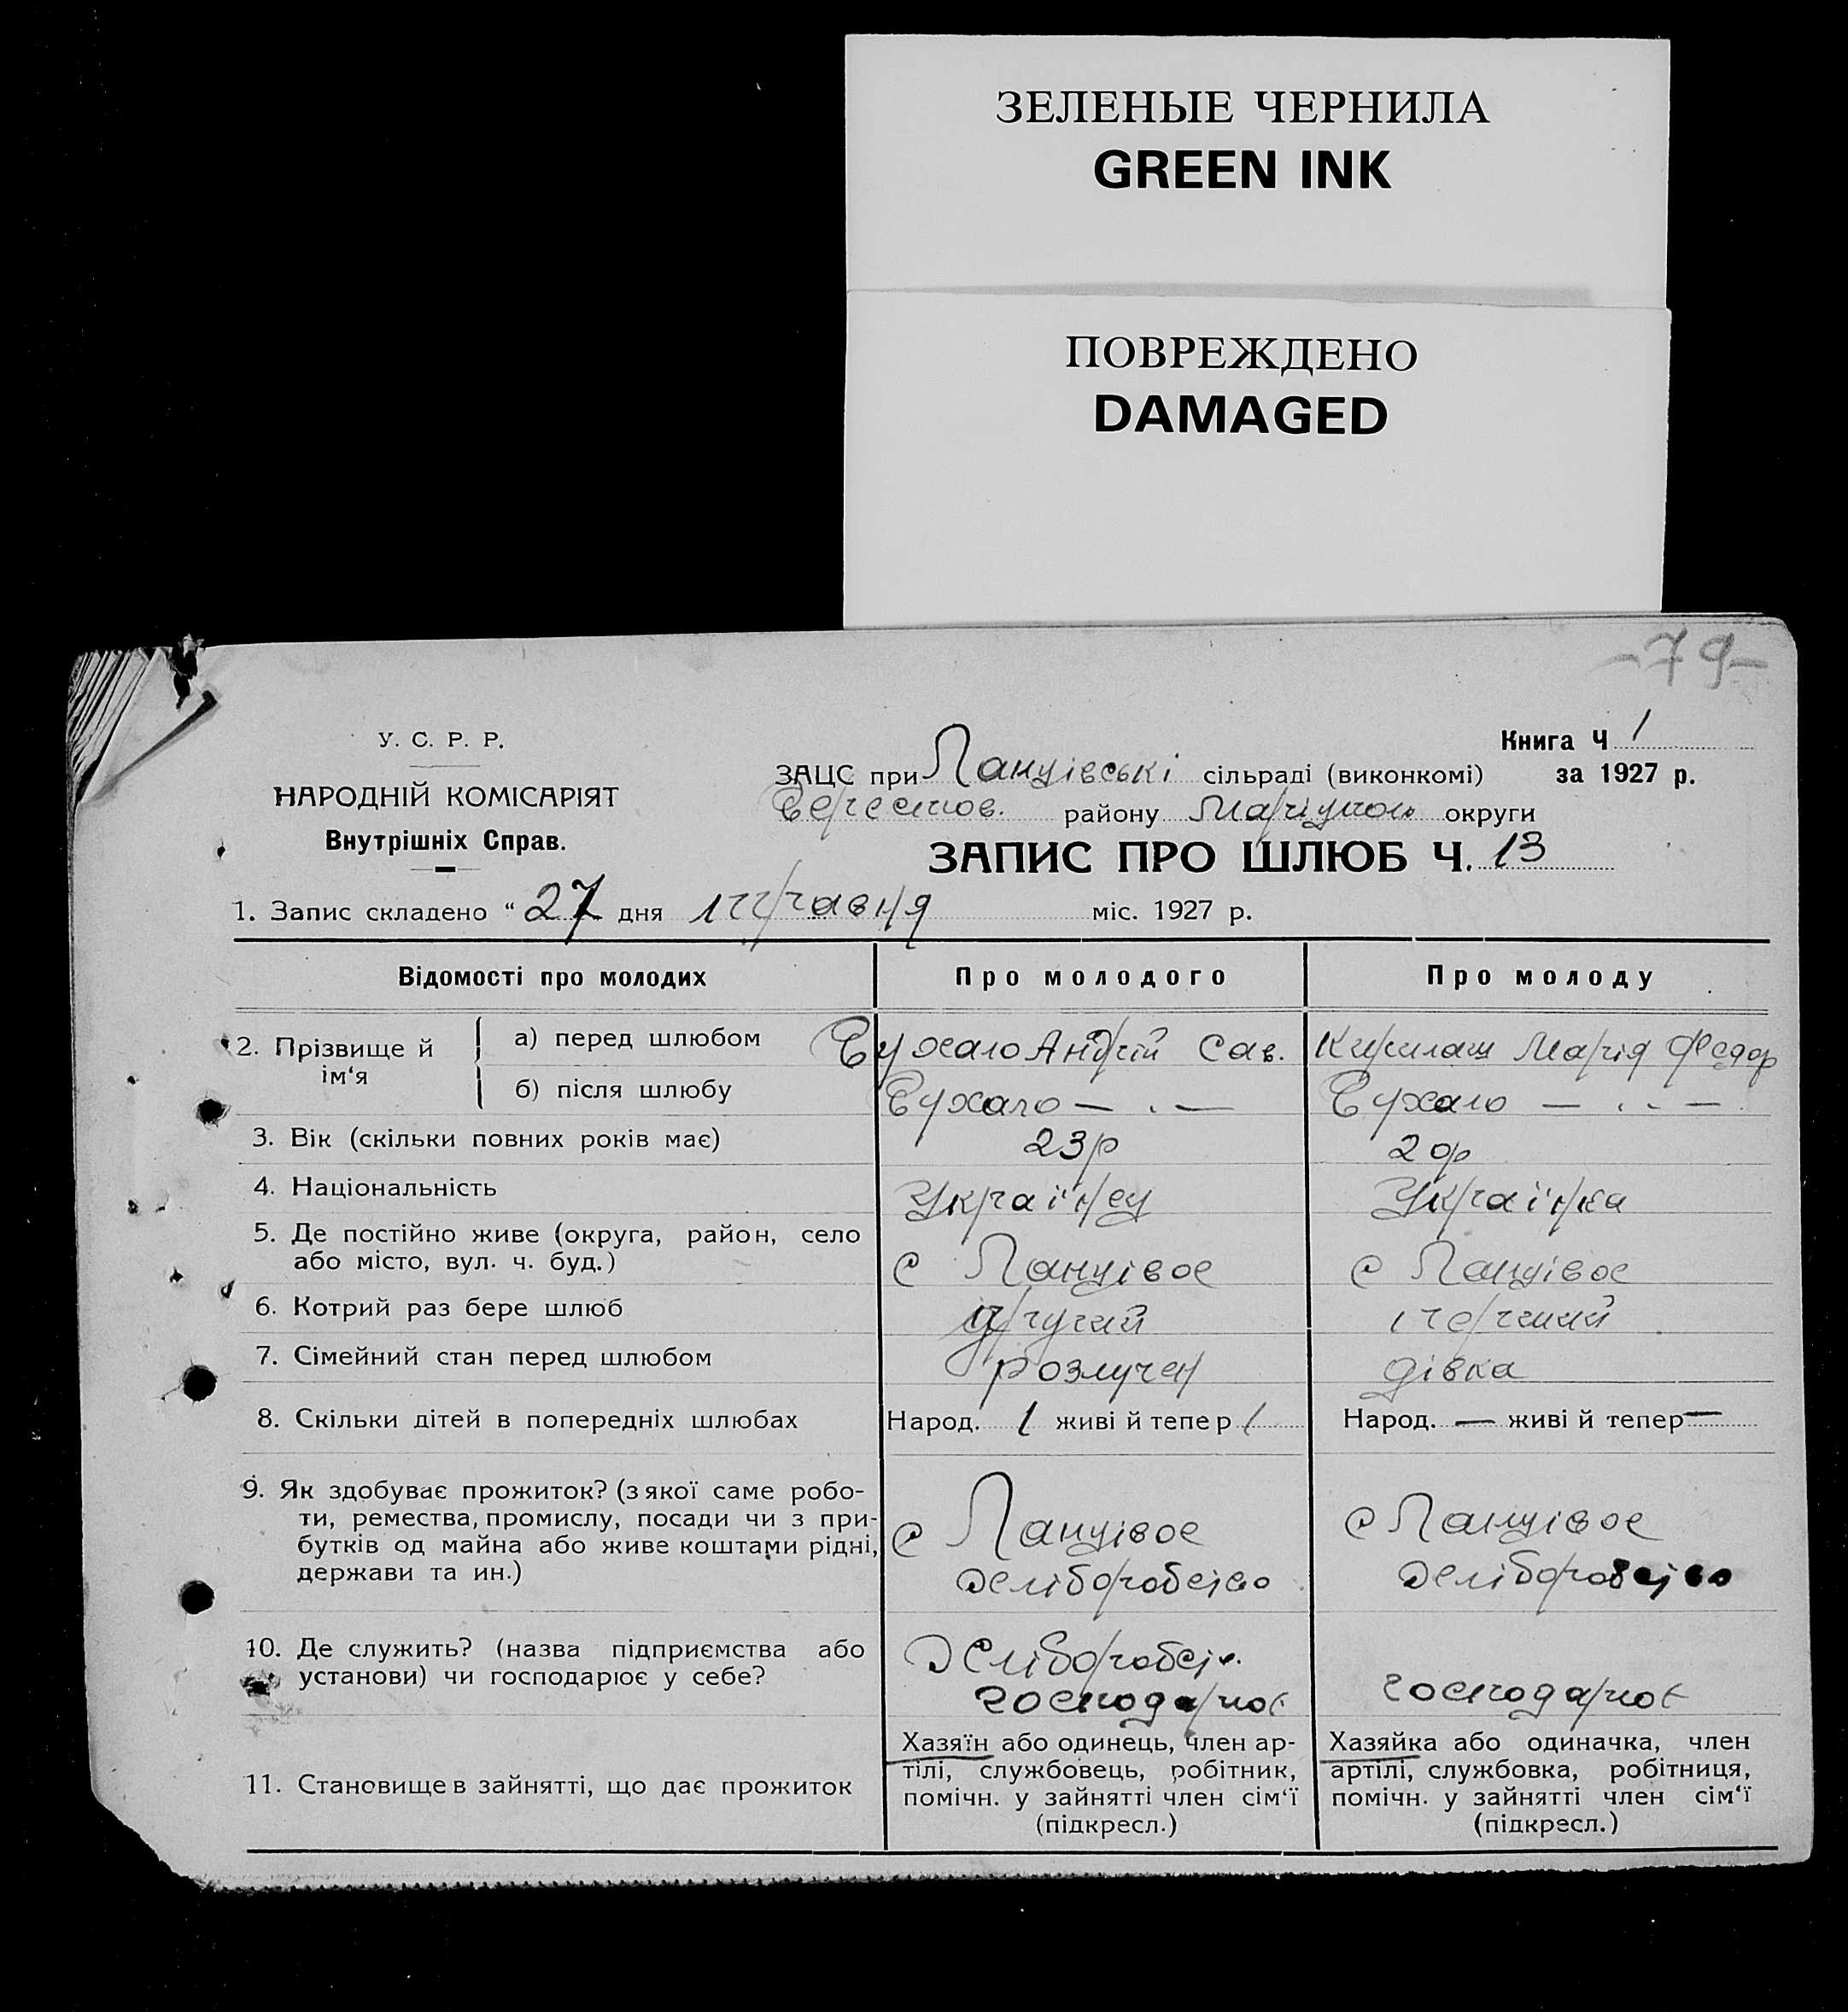 ЗЕЛЕНЫЕ ЧЕРНИЛА
GREEN INK
ПОВРЕЖДЕНО
DAMAGED
-79-
У. С. Р. Р.
НАРОДНІЙ КОМІСАРІЯТ
Внутрішніх Справ.
Книга Ч 1
ЗАЦС при сільраді (виконкомі) за 1927 р.
району округи
ЗАПИС ПРО ШЛЮБ Ч. 13
1. Запис складено " 27 дня травня міс. 1927 р.
Відомості про молодих Про молодого Про молоду
2. Прізвище й ім'я
а) перед шлюбом Андрій Сав. Марія Федор
б) після шлюбу
3. Вік (скільки повних років має) 23р 20р
4. Національність Українец Українка
5. Де постійно живе (округа, район, село
або місто, вул. ч. буд.) с с
6. Котрий раз бере шлюб другий перший
7. Сімейний стан перед шлюбом розлучен дівка
8. Скільки дітей в попередніх шлюбах Народ. 1 живі й тепер 1 Народ. — живі й тепер —
9. Як здобуває прожиток? (з якої саме робо-
ти, ремества, промислу, посади чи з при-
бутків од майна або живе коштами рідні,
держави та ин.)
с
с
10. Де служить? (назва підприємства або
установи) чи господарює у себе?
господарює
господарює
11. Становище в зайнятті, що дає прожиток
Хазяїн або одинець, член ар-
тілі, службовець, робітник,
помічн. у зайнятті член сім'ї
(підкресл.)
Хазяйка або одиначка, член
артілі, службовка, робітниця,
помічн. у зайнятті член сім'ї
(підкресл.)